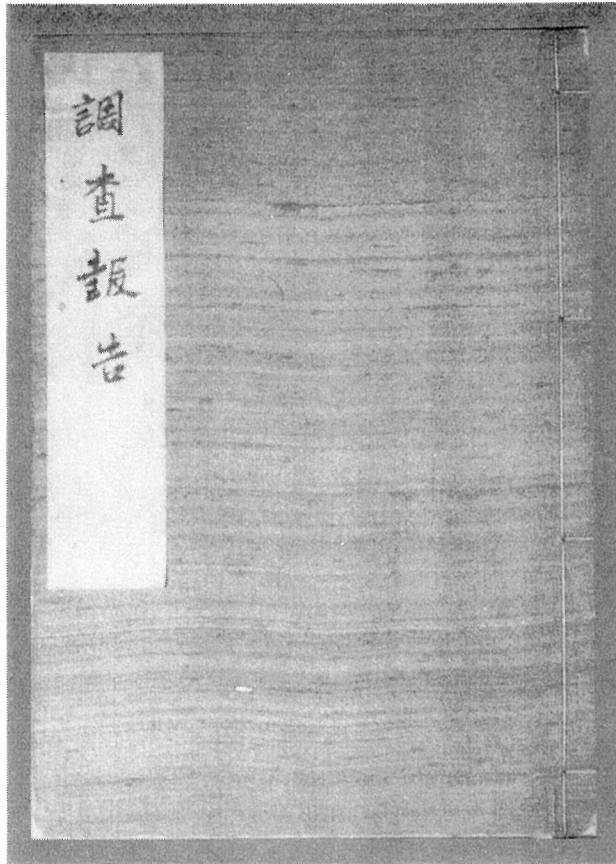 調查報告